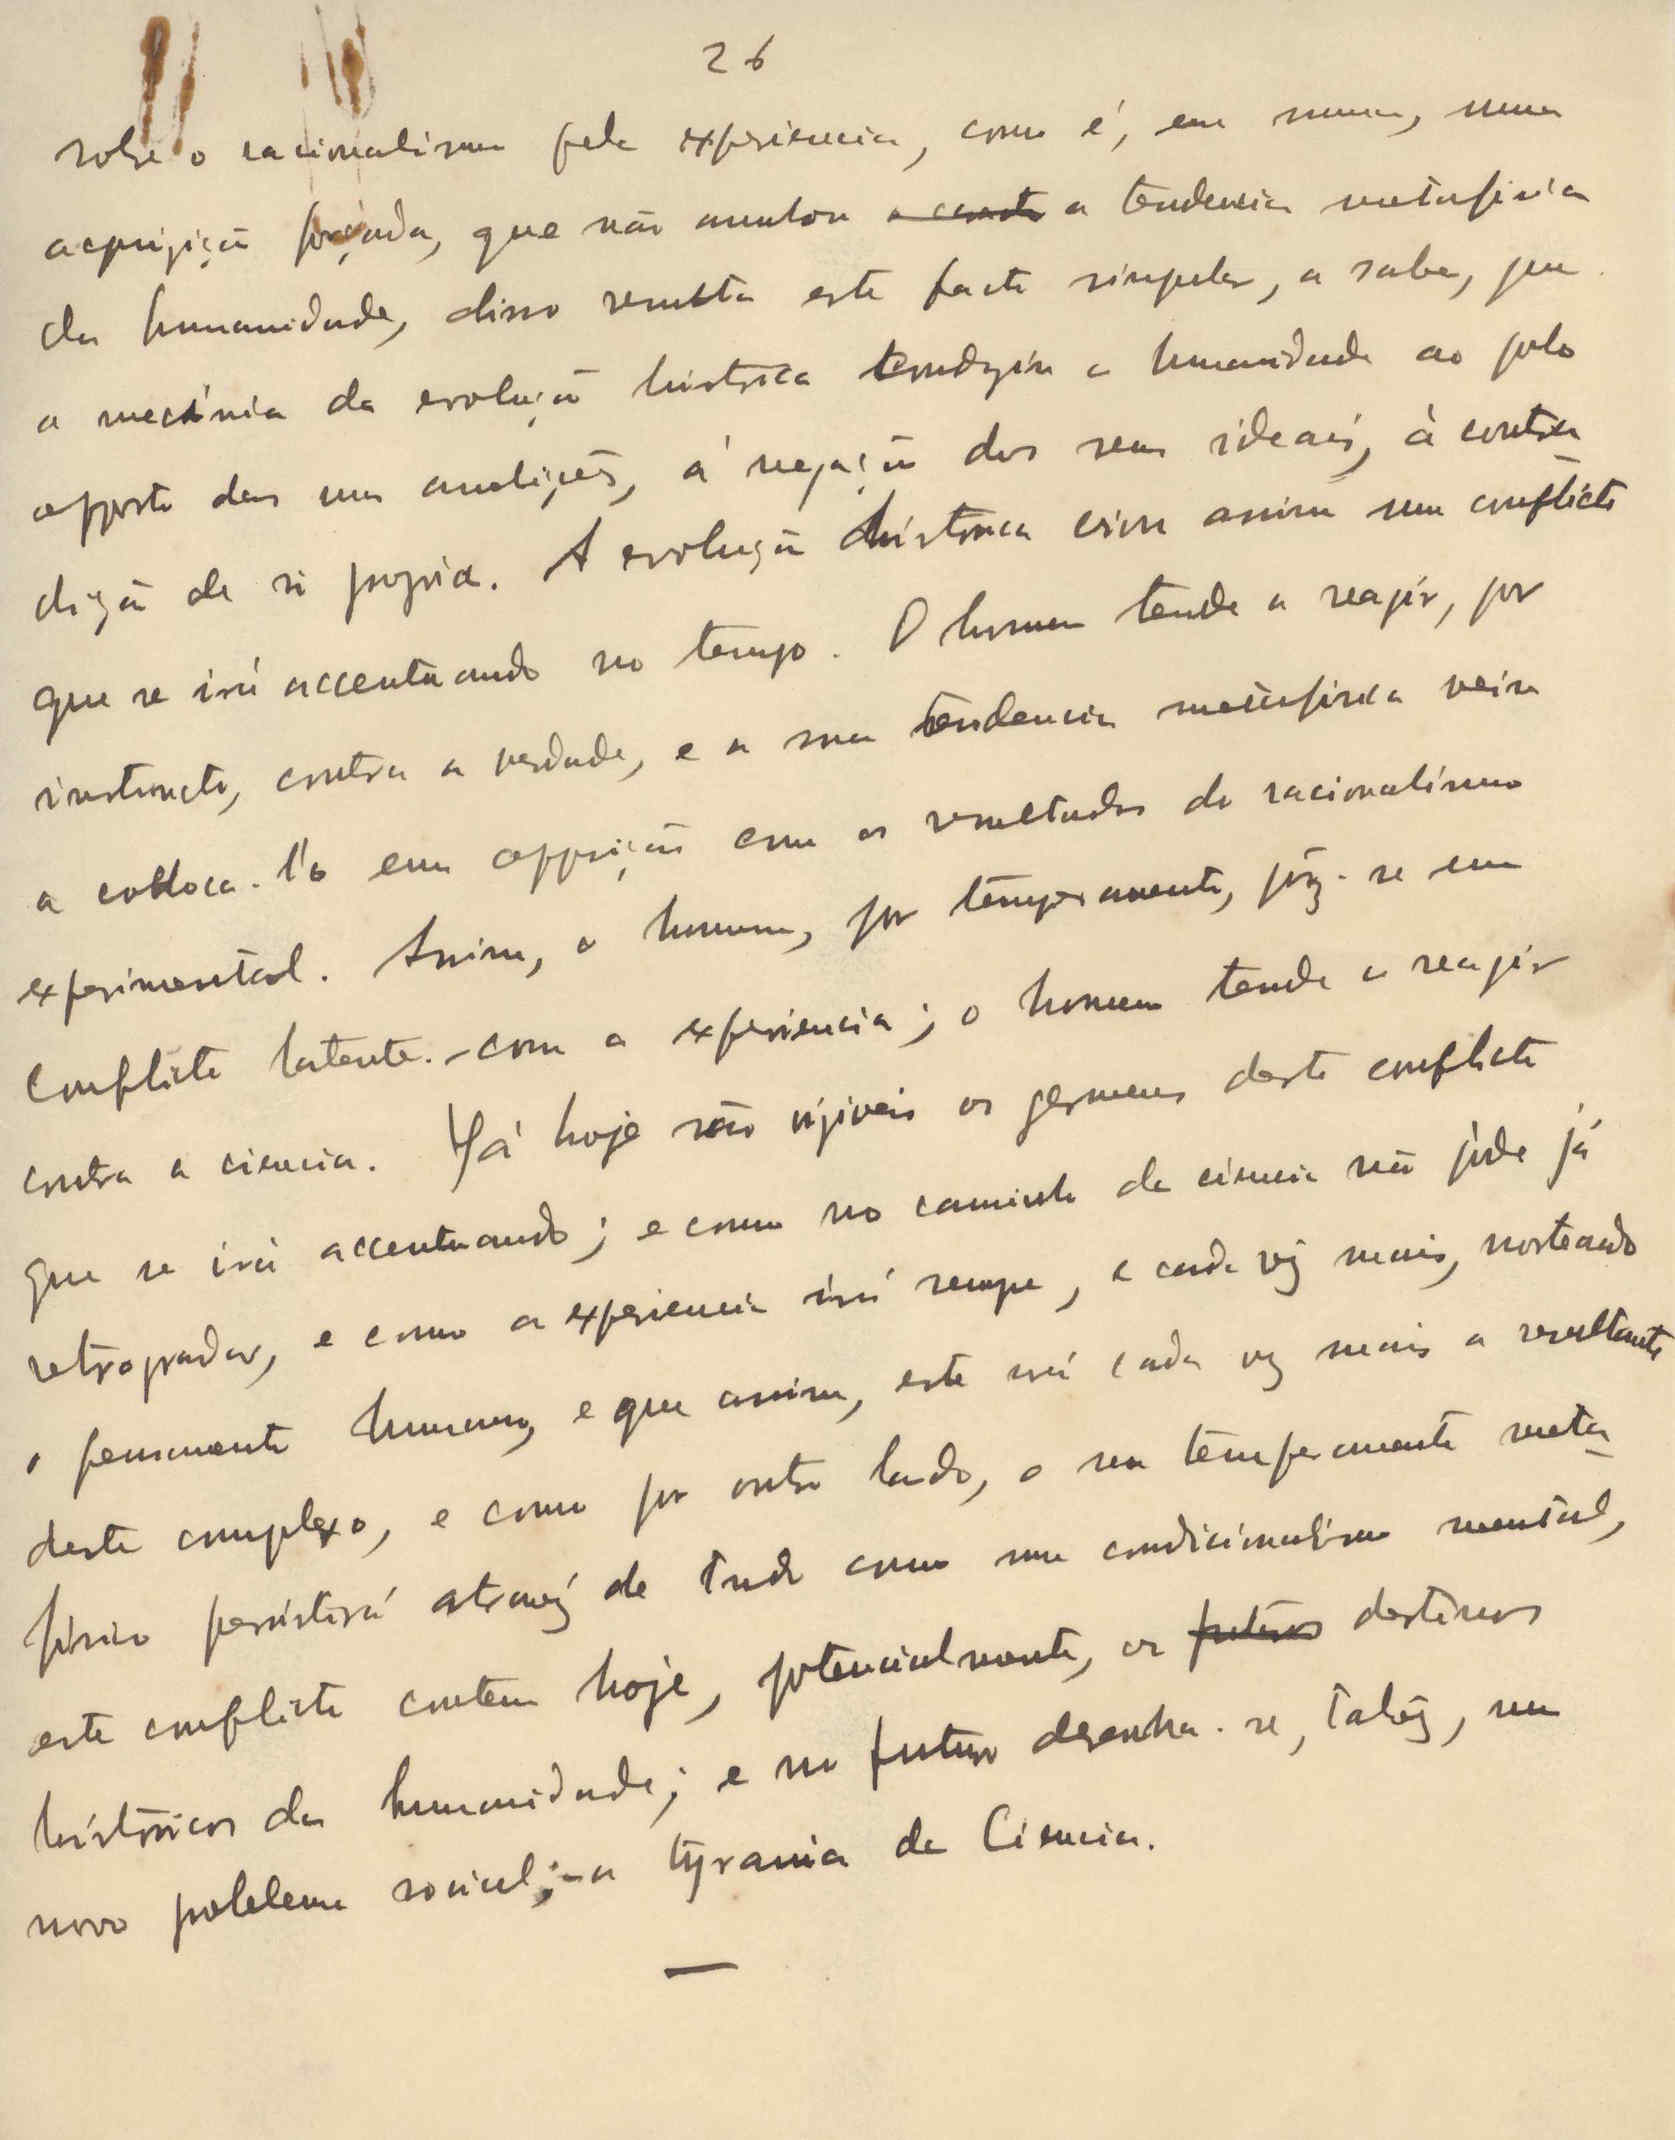 26
sobre o racionalismo pela experiencia, como é, em summa, uma
acquizição forçada, que não annulou a tendencia metafisica
da humanidade, disso resulta este facto singular, a saber, que
a mecânica da evolução histórica conduziu a humanidade ao polo
opposto das suas ambições, á negação dos seus ideais, à contra
dição de si propria. A evolução histórica criou assim um conflicto
que se irá accentuando no tempo. O homem tende a reagir, por
instincto, contra a verdade, e a sua tendencia metafisica veiu
a colloca-l'o em opposição com os resultados do racionalismo
experimental. Assim, o homem, por temperamento, põz-se em
conflicto latente - com a experiencia; o homem tende a reagir
contra a ciencia. Já hoje são vizíveis os germens deste conflicto
que se irá accentuando; e como no caminho da ciencia não póde já
retrogradar, e como a experiencia irá sempre, e cada vez mais, norteando
o pensamento humano, e que assim, este será cada vez mais a resultante
deste complexo, e como por outro lado, o seu temperamento meta
fisico persistirá atravéz de tudo como um condicionalismo mental,
este conflicto contem hoje, potencialmente, os futuros destinos
históricos da humanidade; e no futuro dezenha-se, talvêz, um
novo poblema social; - a tyrania da Ciencia.